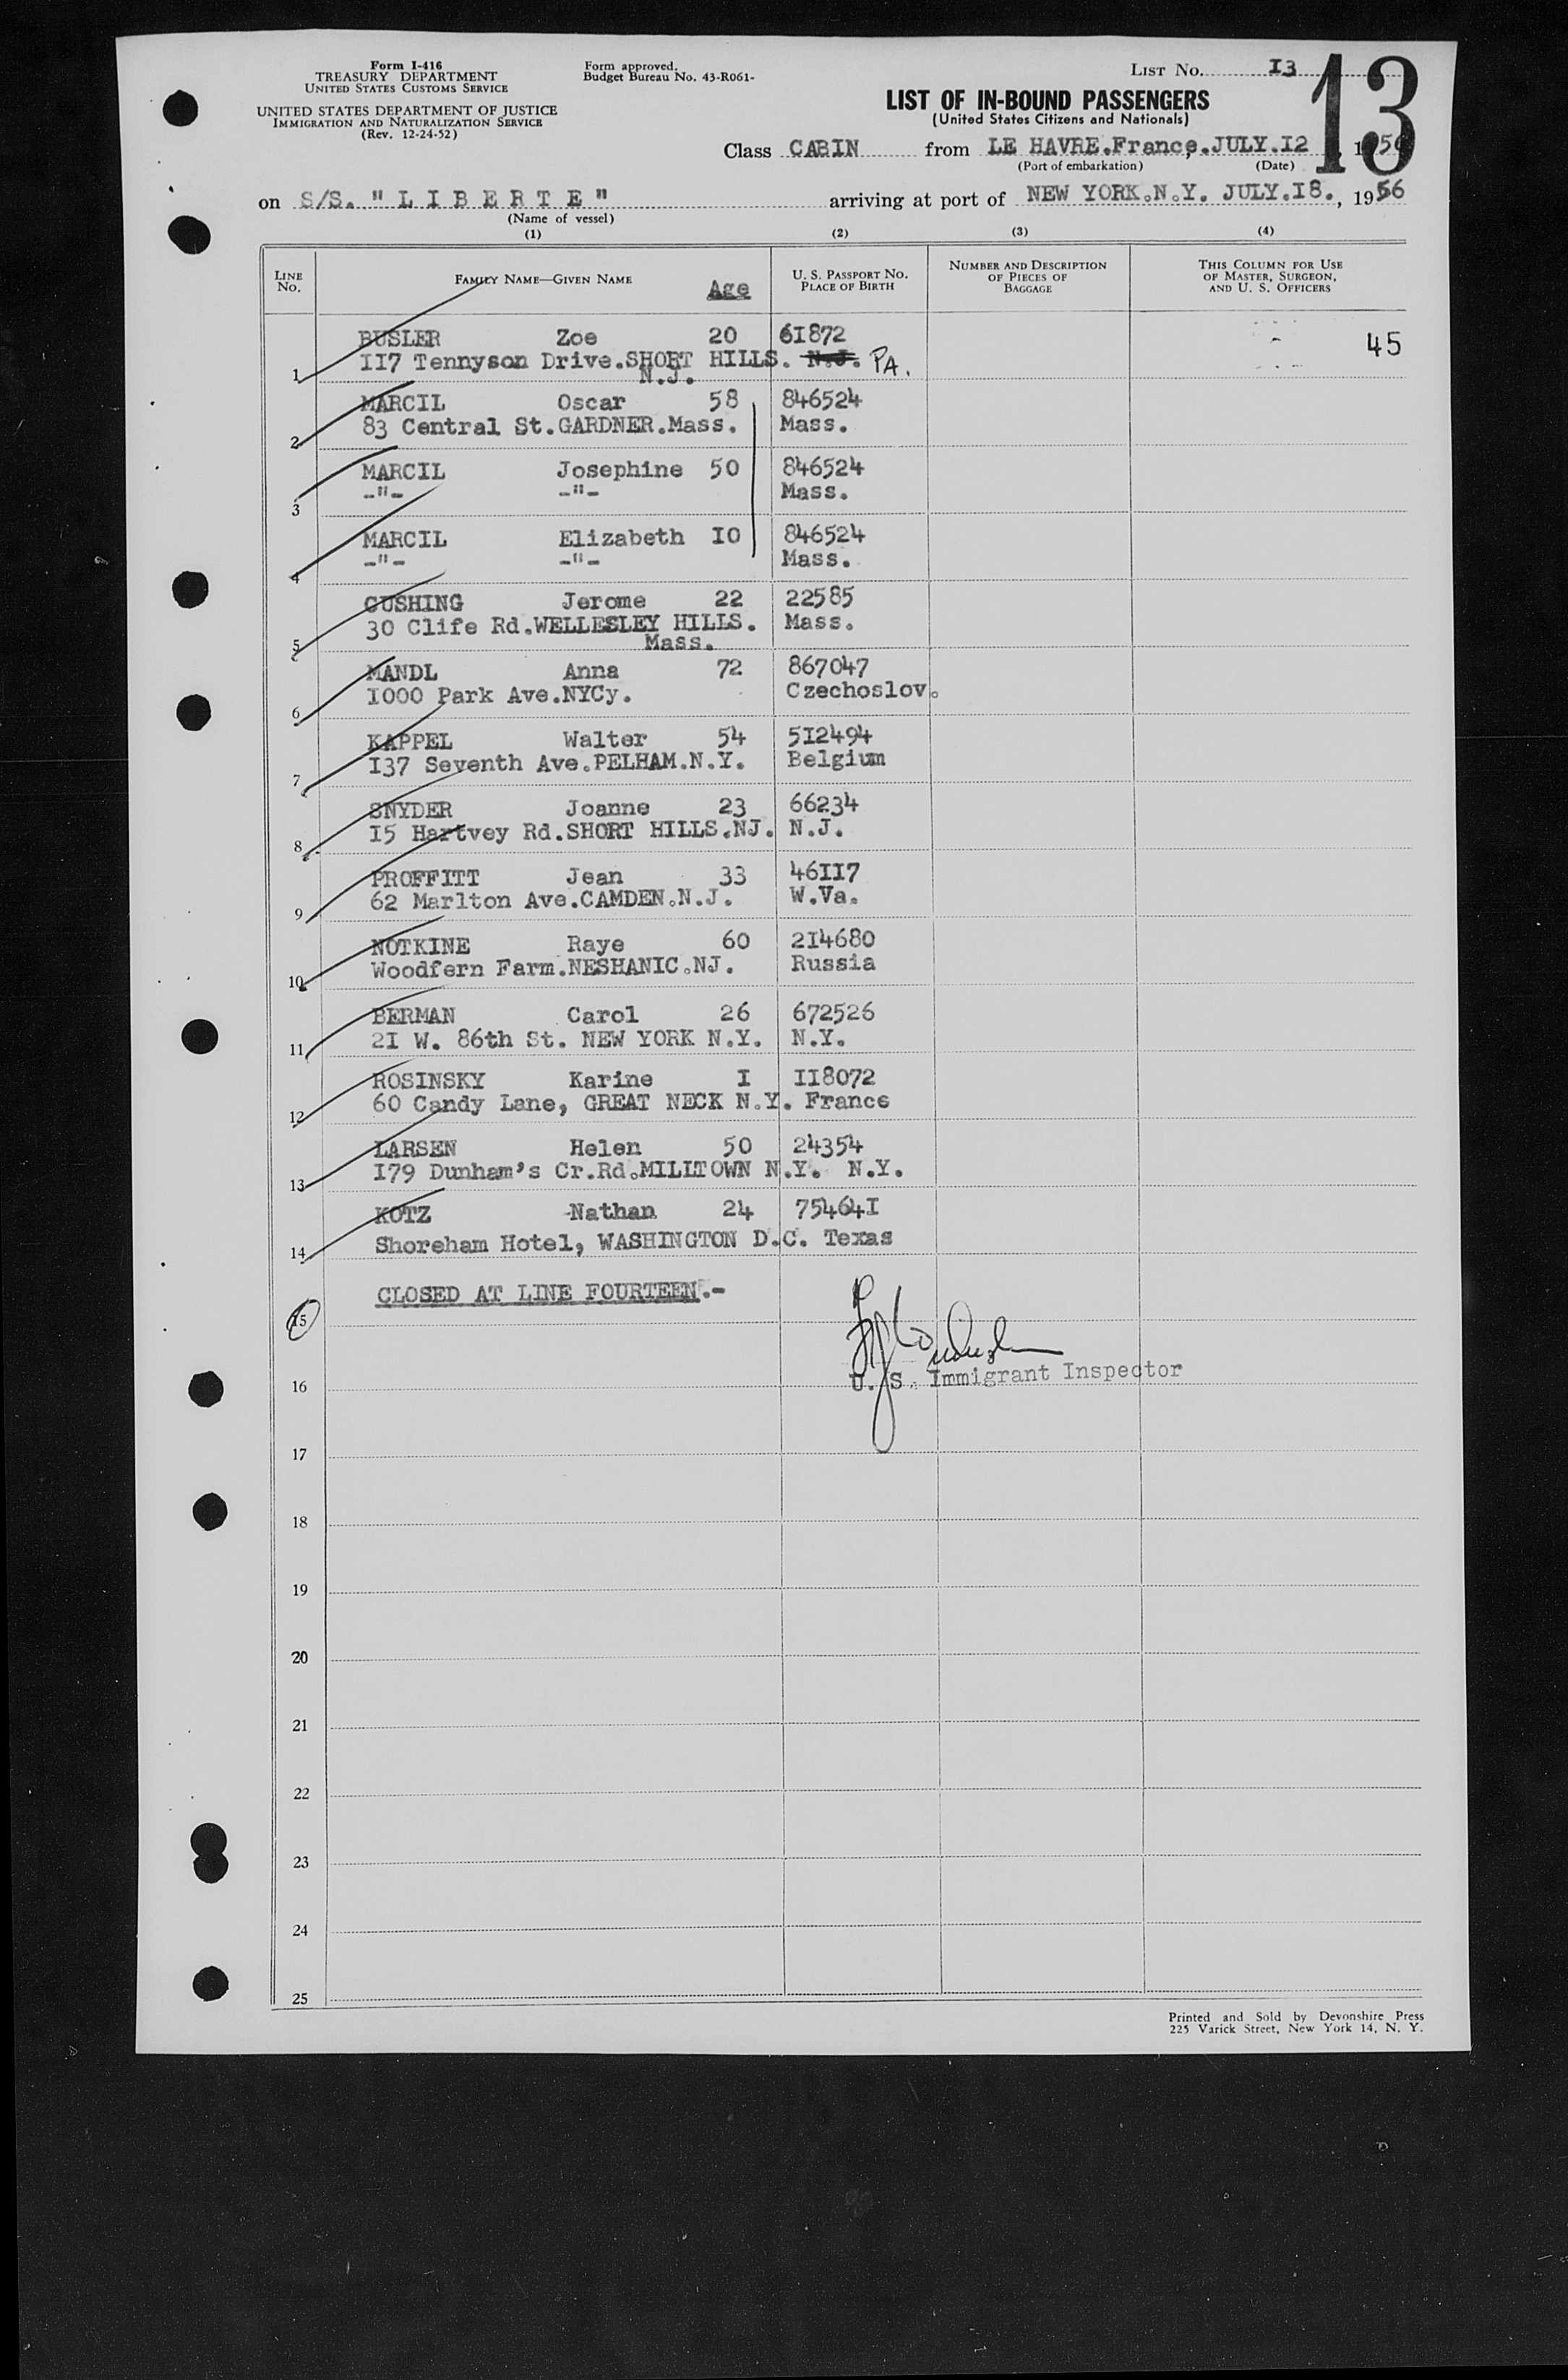 Form I-416
TREASURY DEPARTMENT
UNITED STATES CUSTOMS SERVICE
UNITED STATES DEPARTMENT OF JUSTICE
IMMIGRATION AND NATURALIZATION SERVICE
(Rev. 12-24-52)
Form approved.
Budget Bureau No. 43-R061-
LIST NO. I3
13
LIST OF IN-BOUND PASSENGERS
(United States Citizens and Nationals)
Class CABIN from LE HAVRE.France,.JULY.I2, 1956
(Port of embarkation) (Date)
on S/S. "L I B E R T E" arriving at port of NEW YORK.N.Y. JULY.I8., 1956
(Name of vessel)
(1) (2) (3) (4)
LINE NO. FAMILY NAME—GIVEN NAME Age U. S. PASSPORT NO. PLACE OF BIRTH NUMBER AND DESCRIPTION OF PIECES OF BAGGAGE THIS COLUMN FOR USE OF MASTER, SURGEON, AND U. S. OFFICERS
BUSLER Zoe 20 6I872 45
1 II7 Tennyson Drive.SHORT HILLS. N.J. PA.
N.J.
MARCIL Oscar 58 846524
2 83 Central St.GARDNER.Mass. Mass.
MARCIL Josephine 50 846524
3 -"- -"- Mass.
MARCIL Elizabeth I0 846524
4 -"- -"- Mass.
CUSHING Jerome 22 22585
5 30 Clife Rd.WELLESLEY HILLS. Mass.
Mass.
MANDL Anna 72 867047
6 I000 Park Ave.NYCy. Czechoslov.
KAPPEL Walter 54 5I2494
7 I37 Seventh Ave.PELHAM.N.Y. Belgium
SNYDER Joanne 23 66234
8 I5 Hartvey Rd.SHORT HILLS.NJ. N.J.
PROFFITT Jean 33 46II7
9 62 Marlton Ave.CAMDEN.N.J. W.Va.
NOTKINE Raye 60 2I4680
10 Woodfern Farm.NESHANIC.NJ. Russia
BERMAN Carol 26 672526
11 2I W. 86th St. NEW YORK N.Y. N.Y.
ROSINSKY Karine I II8072
12 60 Candy Lane, GREAT NECK N.Y. France
LARSEN Helen 50 24354
13 I79 Dunham's Cr.Rd.MILLTOWN N.Y. N.Y.
KOTZ Nathan 24 75464I
14 Shoreham Hotel, WASHINGTON D.C. Texas
CLOSED AT LINE FOURTEEN.-
15
U. S. Immigrant Inspector
16
17
18
19
20
21
22
23
24
25
Printed and Sold by Devonshire Press
225 Varick Street, New York 14, N. Y.